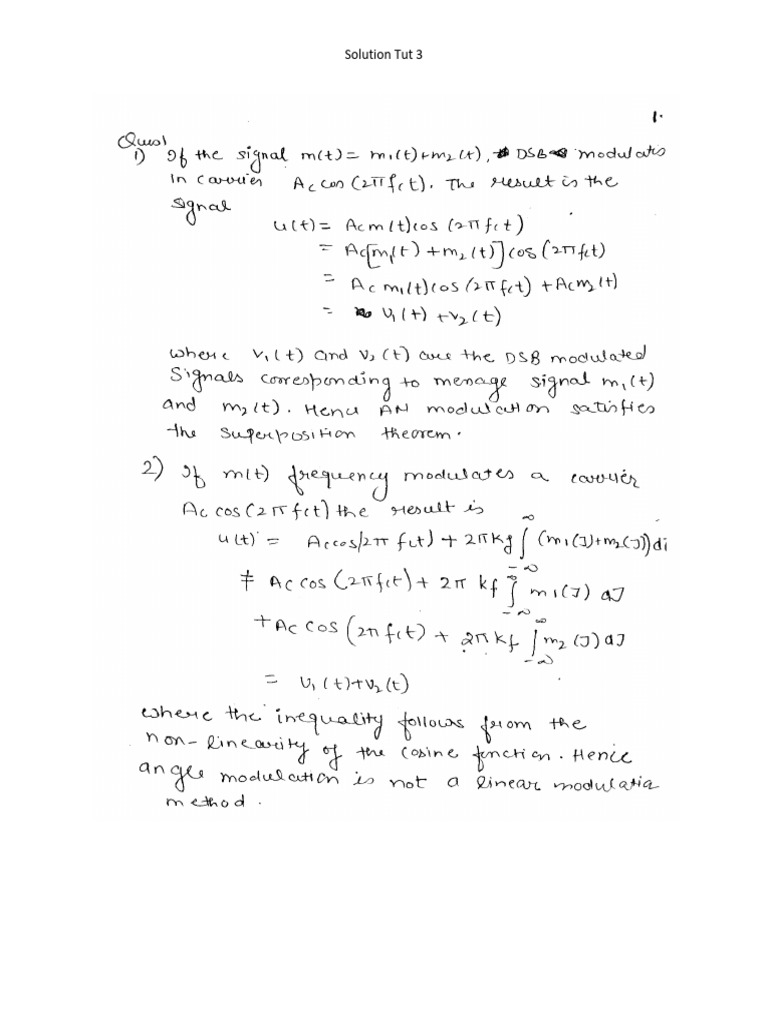 Solution Tut 3
1.
Ques1
1) If the signal m(t) = m1(t)+m2(t), DSB modulates
in carrier Ac cos (2πfct). The result is the
signal
u(t) = Acm(t)cos (2πfct)
= Ac[m1(t) + m2(t)]cos(2πfct)
= Ac m1(t)cos(2πfct) + Acm2(t)
= υ1(t) + v2(t)
where v1(t) and v2(t) are the DSB modulated
Signals corresponding to menage signal m1(t)
and m2(t). Hence AM modulation satisfies
the superposition theorem.
2) If m(t) frequency modulates a carrier
Ac cos(2πfct) the result is
u(t) = Accos(2π fct) + 2πkf ∫_{-∞}^{∞} (m1(J)+m2(J))dj
≠ Ac cos (2πfct) + 2π kf ∫_{-∞}^{∞} m1(J) dJ
+Ac cos (2πfct) + 2πkf ∫_{-∞}^{∞} m2(J)dJ
= υ1(t)+υ2(t)
where the inequality follows from the
non-linearity of the cosine function. Hence
angle modulation is not a linear modulatia
method.